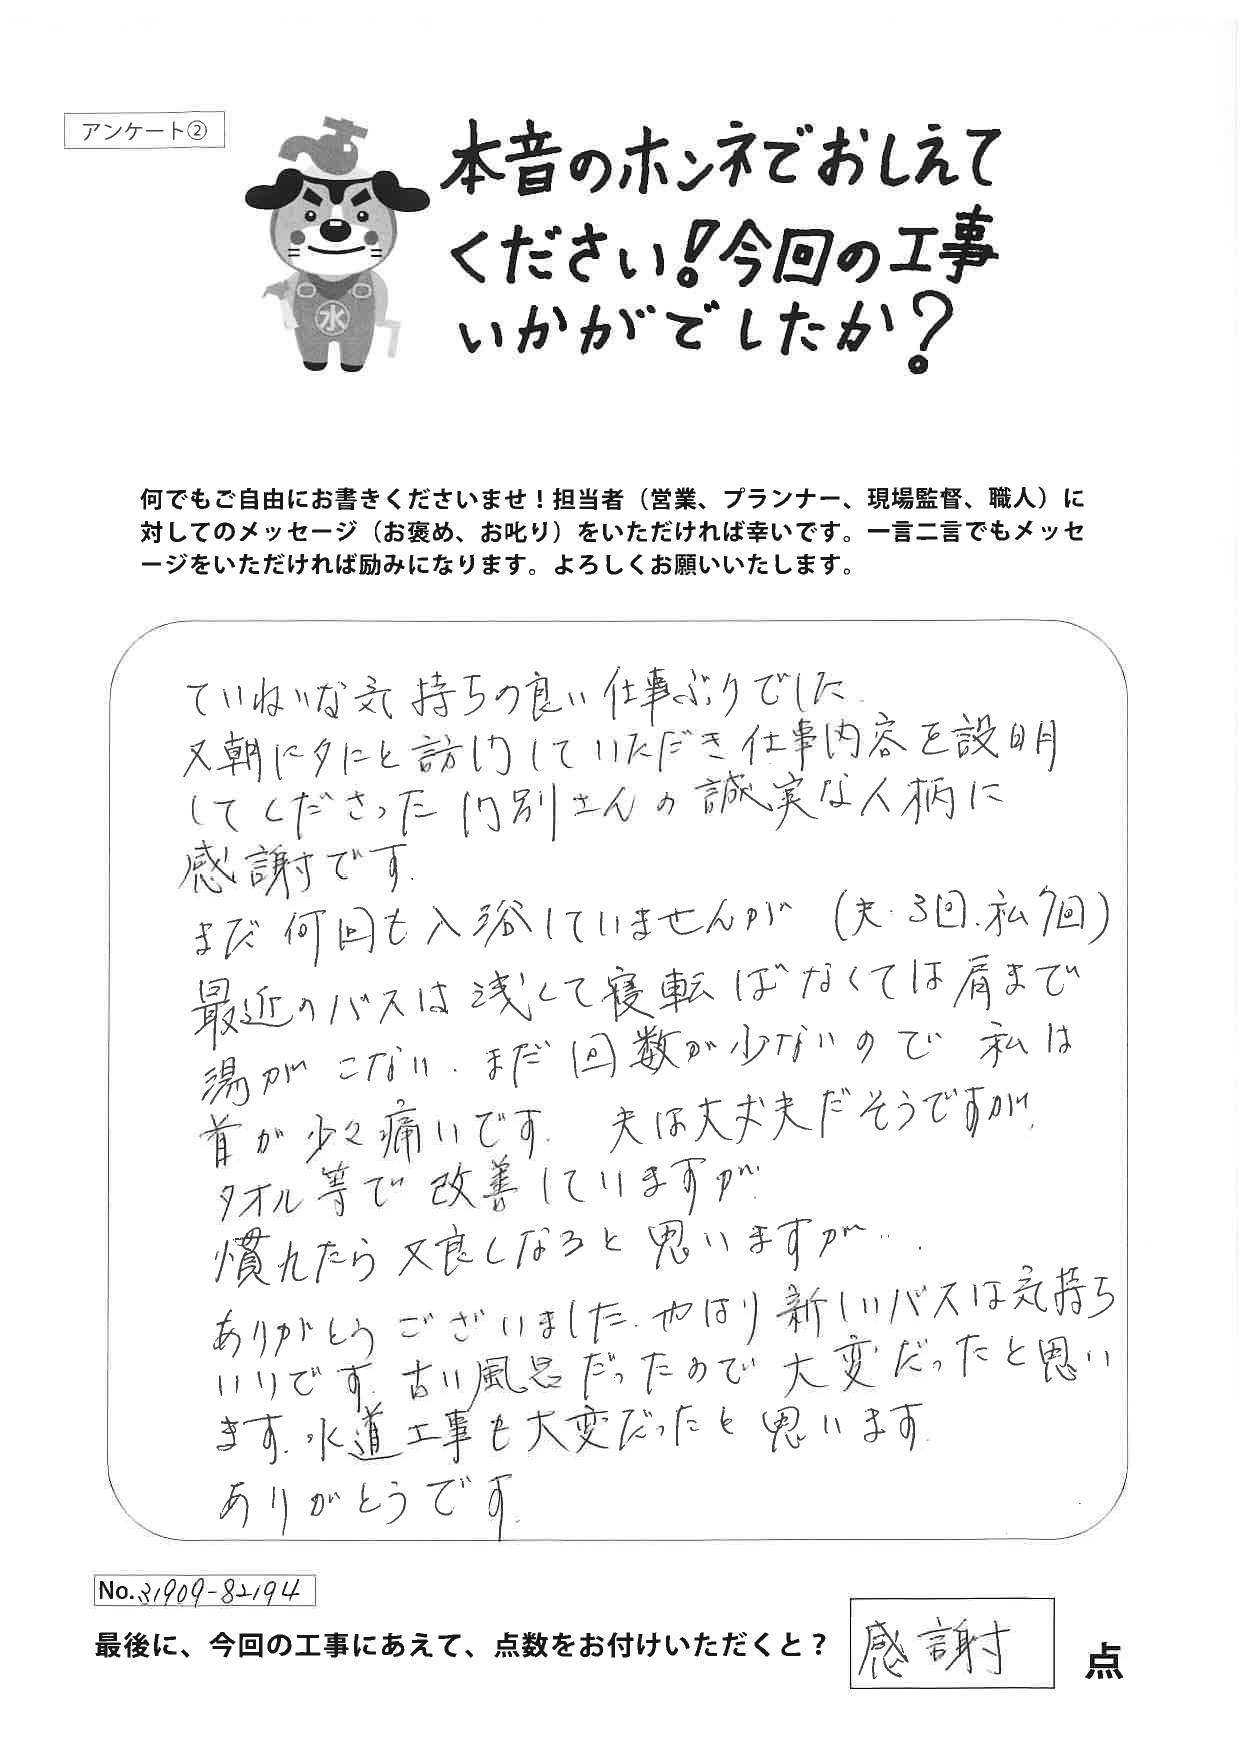 アンケート②
本音のホンネでおしえて
ください!今回の工事
いかがでしたか?
水
何でもご自由にお書きくださいませ!担当者(営業、プランナー、現場監督、職人)に
対してのメッセージ(お褒め、お叱り)をいただければ幸いです。一言二言でもメッセ
ージをいただければ励みになります。よろしくお願いいたします。
ていねいな気持ちの良い仕事ぶりでした。
又朝に夕にと訪門していただき仕事内容を設明
してくださった門別さんの誠実な人柄に
感謝です。
まだ何回も入浴していませんが(夫.3回.私7回)
最近のバスは浅くて寝転ばなくては肩まで
湯がこない.まだ回数が少ないので私は
首が少々痛いです. 夫は大丈夫だそうですが.
タオル等で改善していますが.
慣れたら又良しなろと思いますが...
ありがとうございました.やはり新しいバスは気持ち
いいです.古い風呂だったので大変だったと思い
ます.水道工事も大変だったと思います.
ありがとうです.
No.31909-82194
最後に、今回の工事にあえて、点数をお付けいただくと? 感謝 点